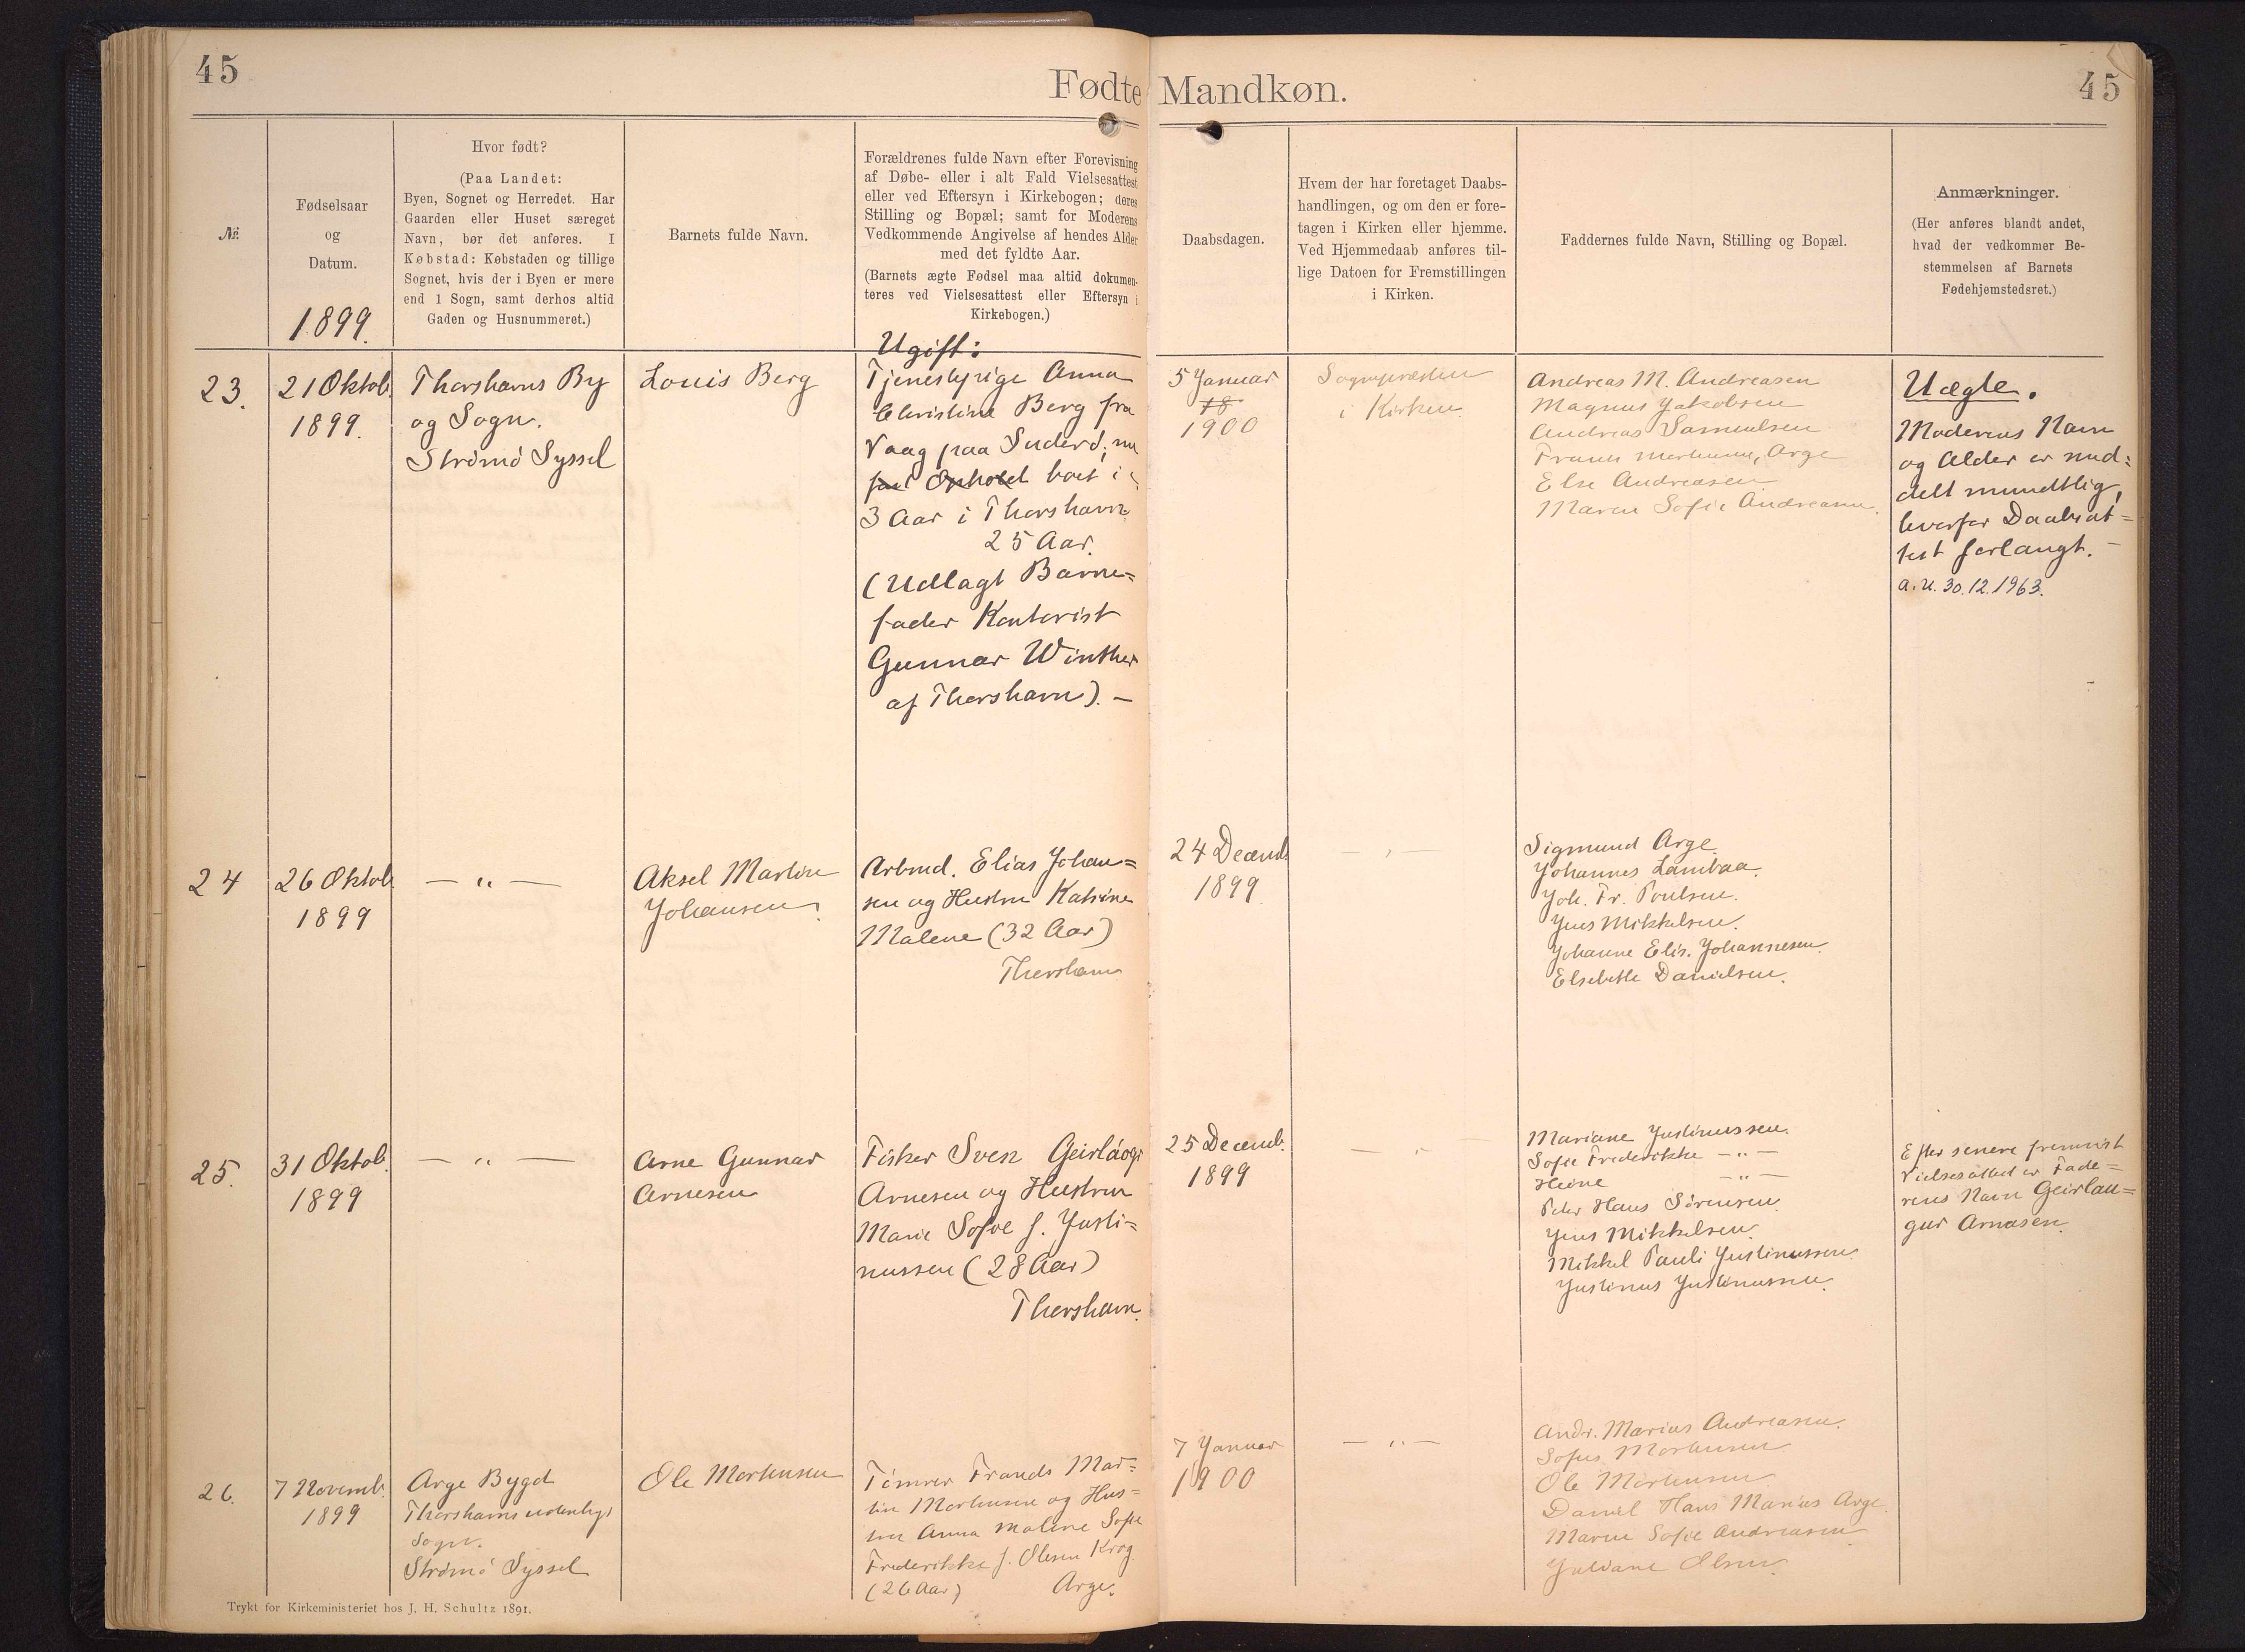 45
Fødte
Mandkøn.
45
№
Fødselsaar
og
Datum.
1899.
Hvor født?
(Paa Landet:
Byen, Sognet og Herredet. Har
Gaarden eller Huset særeget
Navn, bør det anføres. I
Købstad: Købstaden og tillige
Sognet, hvis der i Byen er mere
end 1 Sogn, samt derhos altid
Gaden og Husnummeret.)
Barnets fulde Navn.
Forældrenes fulde Navn efter Forevisning
af Døbe- eller i alt Fald Vielsesattest
eller ved Eftersyn i Kirkebogen; deres
Stilling og Bopæl; samt for Moderens
Vedkommende Angivelse af hendes Alder
med det fyldte Aar.
(Barnets ægte Fødsel maa altid dokumen-
teres ved Vielsesattest eller Eftersyn i
Kirkebogen.)
Daabsdagen.
Hvem der har foretaget Daabs-
handlingen, og om den er fore-
tagen i Kirken eller hjemme.
Ved Hjemmedaab anføres til-
lige Datoen for Fremstillingen
i Kirken.
Faddernes fulde Navn, Stilling og Bopæl.
Anmærkninger.
(Her anføres blandt andet,
hvad der vedkommer Be-
stemmelsen af Barnets
Fødehjemstedsret.)
23.
21 Oktob.
1899.
Thorshavns By
og Sogn.
Strömö Syssel
Louis Berg
Ugift:
Tjenestepige Anna
Christine Berg fra
Vaag paa Suderö, nu
Ophold boet i
3 Aar i Thorshavn.
25 Aar.
(Udlagt Barne=
fader Kontorist
Gunnar Winther
af Thorshavn). —
5 Januar
18
1900
Sognepræsten
i Kirken
Andreas M. Andreasen
Magnus Jakobsen
Andreas Samuelsen
Frants Mortensen, Arge
Else Andreasen
Maren Sofie Andreasen.
Uægte.
Moderens Navn
og Alder er med=
delt mundtlig,
hvorfor Daabsat=
test forlangt. —
a. u. 30.12.1963.
24
26 Oktob.
1899
— „ —
Aksel Martin
Johansen
Arbmd. Elias Johan=
sen og Hustru Katrine
Malene (32 Aar)
Thorshavn
24 Decemb.
1899
— „ —
Sigmund Arge.
Johannes Lambaa.
Joh. Fr. Poulsen.
Jens Mikkelsen.
Johanne Elis. Johannesen.
Elsebeth Danielsen.
25.
31 Oktob.
1899
— „ —
Arne Gunnar
Arnesen
Fisker Sven Geirlaogr
Arnesen og Hustru
Marie Sofie f. Justi=
nussen (28 Aar)
Thorshavn.
25 Decemb.
1899
— „
Mariane Justinussen.
Sofie Frederikke — „ —
Heine — „ —
Peter Hans Sörensen
Jens Mikkelsen.
Mikkel Pauli Justinussen.
Justinus Justinussen.
Efter senere fremvist
Vielsesattest er Fade=
rens Navn Geirlau=
gur Arnasen.
26.
7 Novemb.
1899
Arge Bygd
Thorshavns udenbys
Sogn.
Strömö Syssel
Ole Mortensen
Tömrer Frands Mar=
tin Mortensen og Hus=
tru Anna Malene Sofie
Frederikke f. Olesen Krog
(26 Aar) Arge.
7 Januar
1900
— „ —
Andr. Marius Andreasen.
Sofus Mortensen
Ole Mortensen
Daniel Hans Marius Arge.
Maren Sofie Andreasen
Juliane Olsen.
Trykt for Kirkeministeriet hos J. H. Schultz 1891.